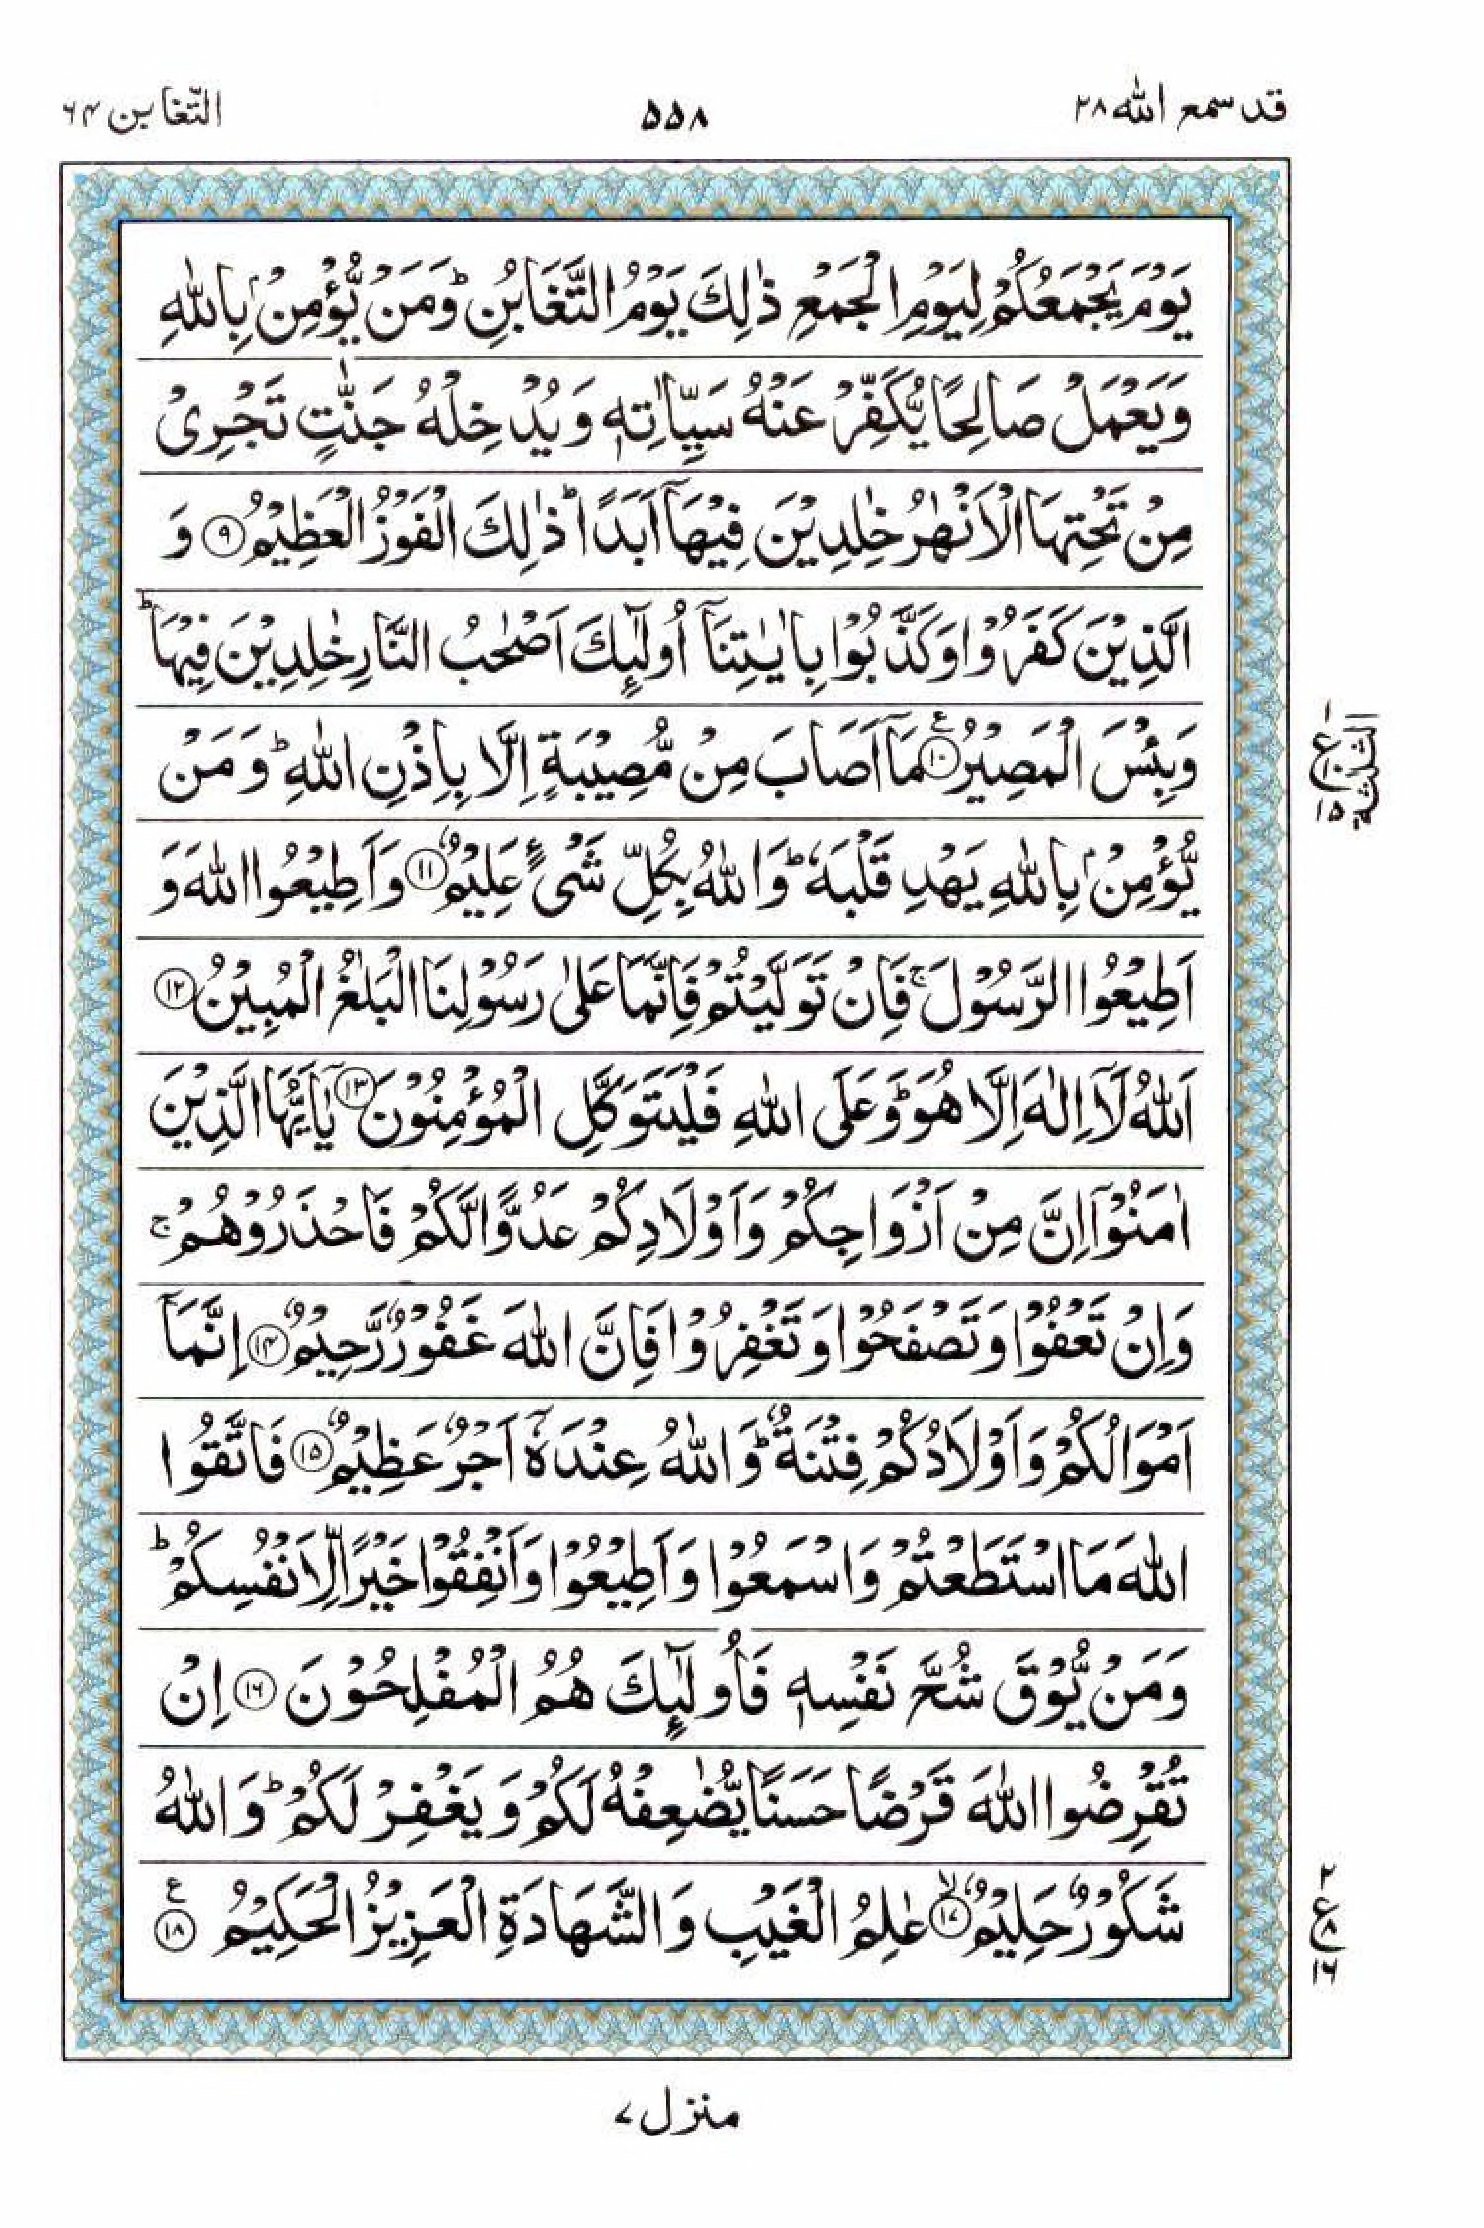 قد سمع الله ۲۸
۵۵۸
التّغابن ۶۴
يَوْمَ يَجْمَعُكُمْ لِيَوْمِ الْجَمْعِ ذٰلِكَ يَوْمُ التَّغَابُنِ ؕ وَمَنْ يُّؤْمِنْۢ بِاللّٰهِ
وَيَعْمَلْ صَالِحًا يُّكَفِّرْ عَنْهُ سَيِّاٰتِهٖ وَيُدْخِلْهُ جَنّٰتٍ تَجْرِىْ
مِنْ تَحْتِهَا الْاَنْهٰرُ خٰلِدِيْنَ فِيْهَاۤ اَبَدًا ؕ ذٰلِكَ الْفَوْزُ الْعَظِيْمُ ۹ وَ
الَّذِيْنَ كَفَرُوْا وَكَذَّبُوْا بِاٰيٰتِنَاۤ اُولٰٓئِكَ اَصْحٰبُ النَّارِ خٰلِدِيْنَ فِيْهَا ؕ
وَبِئْسَ الْمَصِيْرُ ۱۰ ع مَاۤ اَصَابَ مِنْ مُّصِيْبَةٍ اِلَّا بِاِذْنِ اللّٰهِ ؕ وَمَنْ
يُّؤْمِنْۢ بِاللّٰهِ يَهْدِ قَلْبَهٗ ؕ وَاللّٰهُ بِكُلِّ شَىْءٍ عَلِيْمٌ ۱۱ وَاَطِيْعُوا اللّٰهَ وَ
اَطِيْعُوا الرَّسُوْلَ ۚ فَاِنْ تَوَلَّيْتُمْ فَاِنَّمَا عَلٰى رَسُوْلِنَا الْبَلٰغُ الْمُبِيْنُ ۱۲
اَللّٰهُ لَاۤ اِلٰهَ اِلَّا هُوَ ؕ وَعَلَى اللّٰهِ فَلْيَتَوَكَّلِ الْمُؤْمِنُوْنَ ۱۳ يٰۤاَيُّهَا الَّذِيْنَ
اٰمَنُوْۤا اِنَّ مِنْ اَزْوَاجِكُمْ وَاَوْلَادِكُمْ عَدُوًّا لَّكُمْ فَاحْذَرُوْهُمْ ۚ
وَاِنْ تَعْفُوْا وَتَصْفَحُوْا وَتَغْفِرُوْا فَاِنَّ اللّٰهَ غَفُوْرٌ رَّحِيْمٌ ۱۴ اِنَّمَاۤ
اَمْوَالُكُمْ وَاَوْلَادُكُمْ فِتْنَةٌ ؕ وَاللّٰهُ عِنْدَهٗۤ اَجْرٌ عَظِيْمٌ ۱۵ فَاتَّقُوا
اللّٰهَ مَا اسْتَطَعْتُمْ وَاسْمَعُوْا وَاَطِيْعُوْا وَاَنْفِقُوْا خَيْرًا لِّاَنْفُسِكُمْ ؕ
وَمَنْ يُّوْقَ شُحَّ نَفْسِهٖ فَاُولٰٓئِكَ هُمُ الْمُفْلِحُوْنَ ۱۶ اِنْ
تُقْرِضُوا اللّٰهَ قَرْضًا حَسَنًا يُّضٰعِفْهُ لَكُمْ وَيَغْفِرْ لَكُمْ ؕ وَاللّٰهُ
شَكُوْرٌ حَلِيْمٌ ۱۷ ۙ عٰلِمُ الْغَيْبِ وَالشَّهَادَةِ الْعَزِيْزُ الْحَكِيْمُ ۱۸ ع
۱
ع ۱۰
۱۵
الثلثة
۲
ع ۸
۱۶
منزل ۷